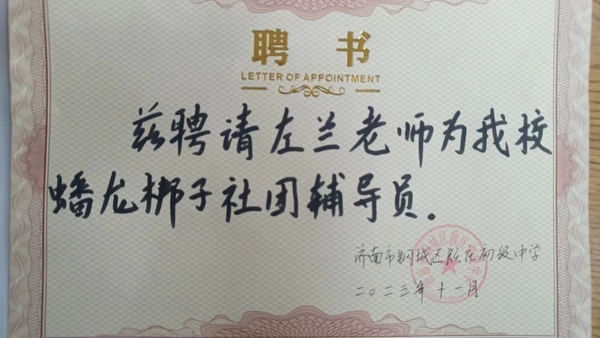 聘书
LETTER OF APPOINTMENT
兹聘请左兰老师为我校
蟠龙梆子社团辅导员.
济南市钢城区
初级中学
二〇二三年十一月